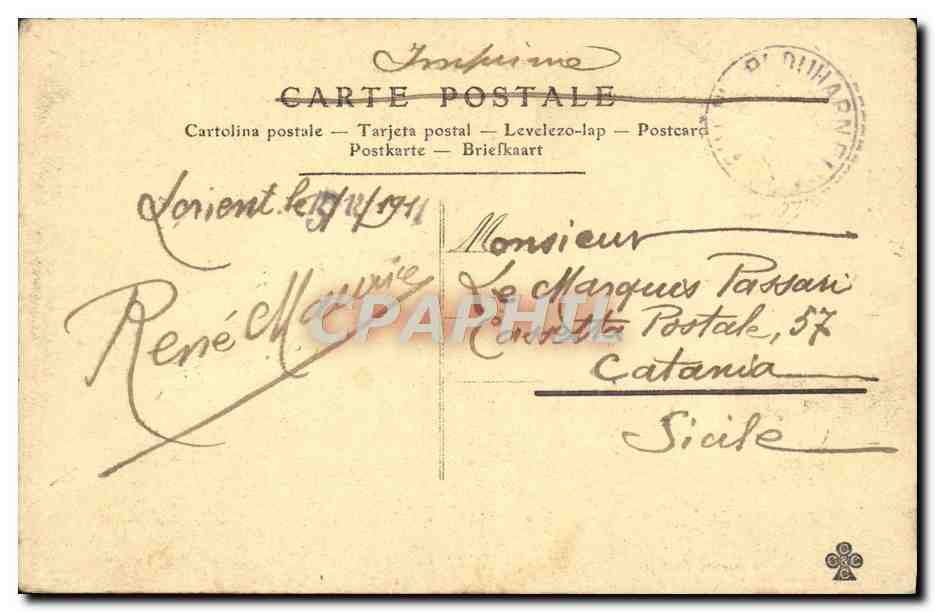 Imprimé
CARTE POSTALE
Cartolina postale — Tarjeta postal — Levelezo-lap — Postcard
Postkarte — Briefkaart
PLOUHARNEL
Lorient le 15/12/1911
René Mauvie
Monsieur
Le Marquis Passari
Cassetta Postale, 57
Catania
Sicile
CPAPHIL
C C & C C